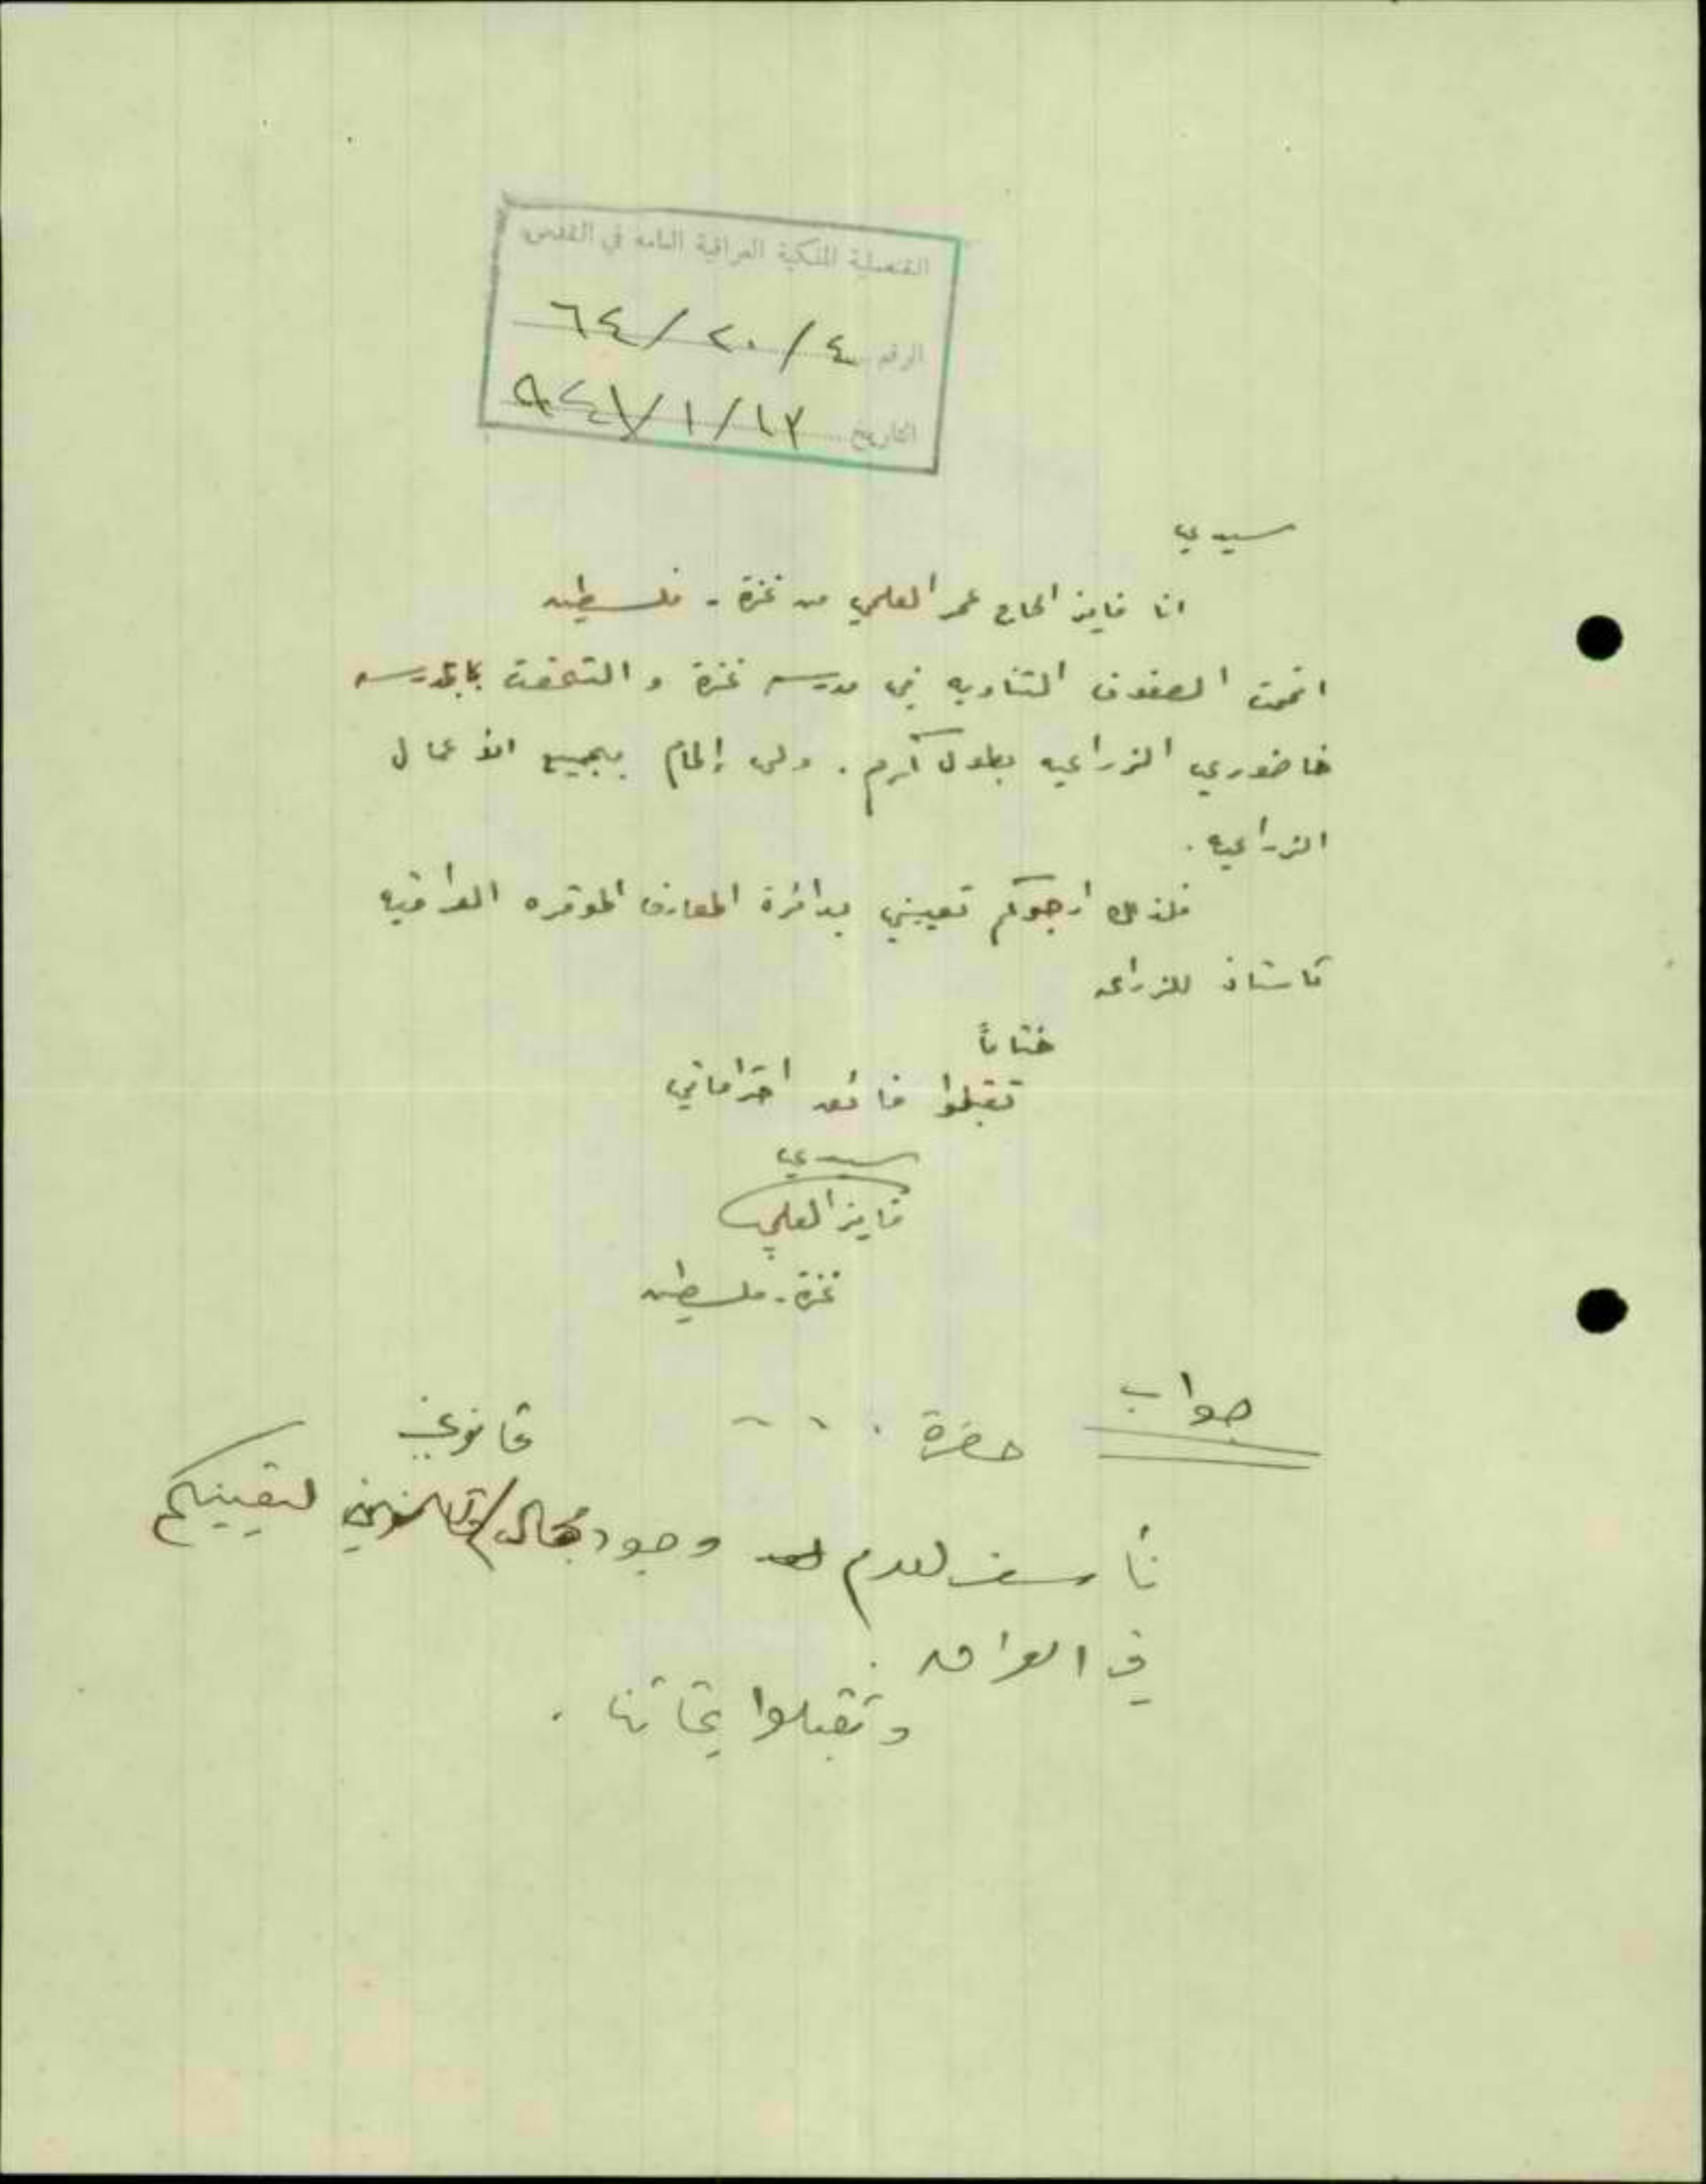 القنصلية الملكية العراقية العامة في القدس
الرقم ٤/٢٠/٦٤
التاريخ ١٣/١/
سيدي
انا فايز الحاج عمر العلمي من غزة - فلسطين
اتممت الصفوف الثناويه في مدرسه غزة و التحقت بالمدرسه
خاضوري الزراعيه بطول كرم . ولي إلمام بجميع الأعمال
الزراعيه .
فلذلك ارجوكم تعييني بدائرة المعارف الموقره العراقيه
كاستاذ للزراعه
ختاماً
تقبلوا فائق احتراماتي
سيدي
فايز العلمي
غزة - فلسطين
جواب
حضرة . . . .
قانوني
نأسف لعدم وجود مجال لتعيينكم
في العراق .
وتقبلوا تحياتنا .